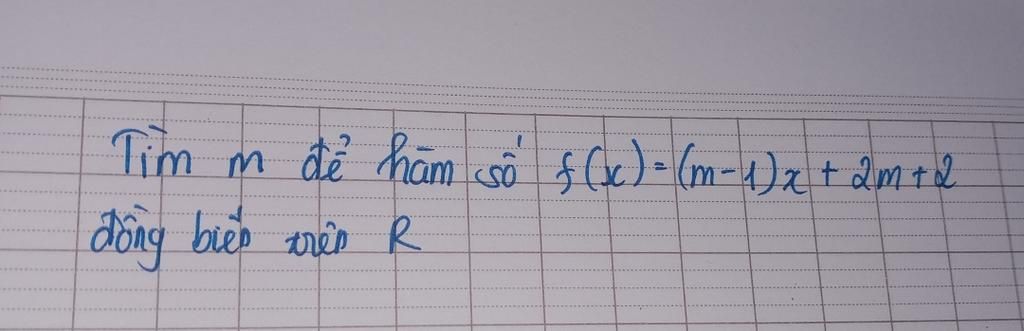 Tìm m để hàm số f(x)=(m-1)x + 2m+2
đồng biến trên R